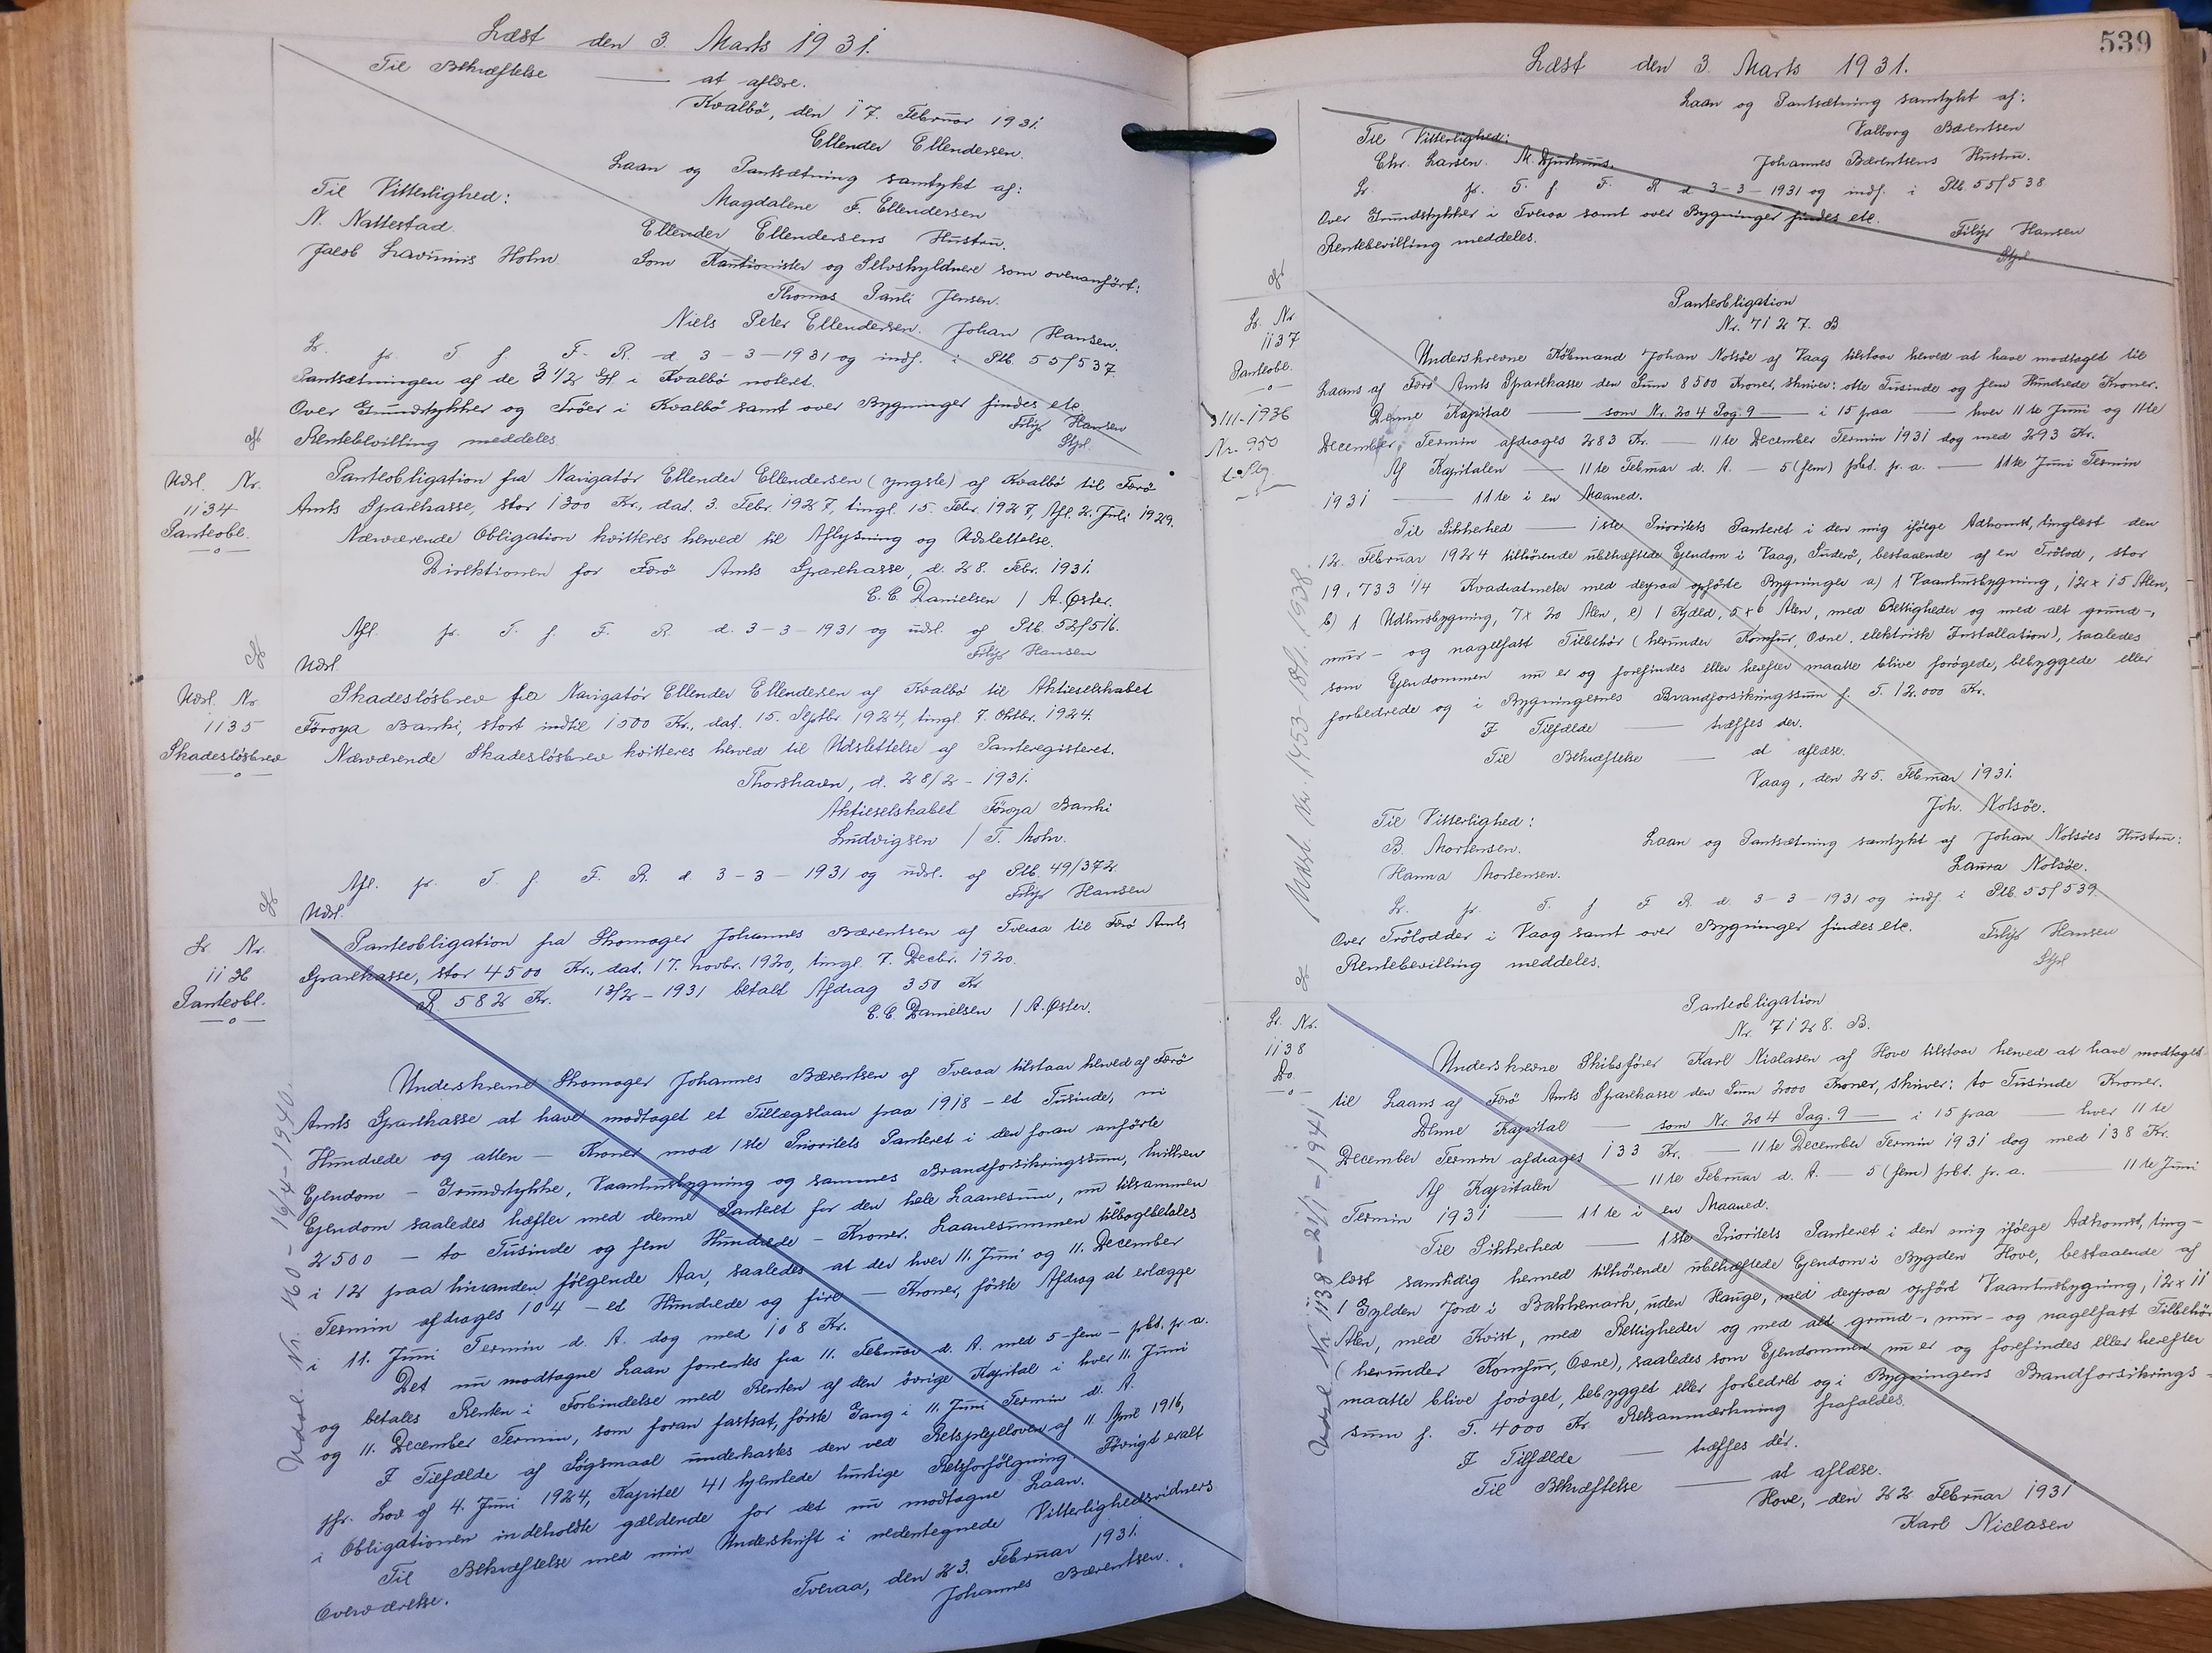 Læst den 3. Marts 1931.
Til Bekræftelse — at aflæse.
Kvalbø, den 17. Februar 1931.
Ellender Ellendersen.
Laan og Pantsætning samtykt af:
Til Vitterlighed:
Magdalene F. Ellendersen
N. Nattestad.
Ellender Ellendersens Hustru.
Jacob Lavinius Holm.
Som Kautionister og Selvskyldnere som ovenanført:
Thomas Pauli Jensen.
Niels Peter Ellendersen. Johan Hansen.
Lr. pr. T. f. F. R. d. 3-3-1931 og indf. i Ptb. 55/537.
Pantsætningen af de 3 1/2 Gl i Kvalbø noteret.
Over Grundstykker og Trøer i Kvalbø samt over Bygninger findes etc
Rentebevilling meddeles.
Filip Hansen
Stpl.
Udsl. Nr.
1134
Panteobl.
Panteobligation fra Navigatør Ellender Ellendersen (yngste) af Kvalbø til Færø
Amts Sparekasse, stor 1300 Kr., dat. 3. Febr. 1927, tingl. 15. Febr. 1927, Afl. 2. Juli 1929.
Nærværende Obligation kvitteres herved til Aflysning og Udslettelse.
Direktionen for Færø Amts Sparekasse, d. 28. Febr. 1931.
C. C. Danielsen / A. Øster.
Afl. pr. T. f. F. R. d. 3-3-1931 og udsl. af Ptb. 52/516.
Filip Hansen
Udsl.
Udsl. Nr.
1135
Skadesløsbrev
Skadesløsbrev fra Navigatør Ellender Ellendersen af Kvalbø til Aktieselskabet
Föroya Banki, stort indtil 1500 Kr., dat. 15. Septbr. 1924, tingl. 7. Oktbr. 1924.
Nærværende Skadesløsbrev kvitteres herved til Udslettelse af Panteregisteret.
Thorshavn, d. 28/2-1931.
Aktieselskabet Föroya Banki
Ludvigsen / T. Mohr.
Afl. pr. T. f. F. R. d. 3-3-1931 og udsl. af Ptb. 49/372.
Filip Hansen
Udsl.
Lr Nr.
1136
Panteobl.
Panteobligation fra Skomager Johannes Bærentsen af Tveraa til Færø Amts
Sparekasse, stor 4500 Kr., dat. 17. Novbr. 1920, tingl. 7. Decbr. 1920.
R. 582 Kr. 13/2-1931 betalt Afdrag 350 Kr
C. C. Danielsen / A. Øster.
Underskrevne Skomager Johannes Bærentsen af Tveraa tilstaar herved af Færø
Amts Sparekasse at have modtaget et Tillægslaan paa 1918 - et Tusinde, ni
Hundrede og atten - Kroner mod 1ste Prioritets Panteret i den foran anførte
Ejendom - Grundstykke, Vaanhusbygning og sammes Brandforsikringssum, hvilken
Ejendom saaledes hæfter med denne Panteret for den hele Laanesum, nu tilsammen
2500 - to Tusinde og fem Hundrede - Kroner. Laanesummen tilbagebetales
i 12 paa hinanden følgende Aar, saaledes at der hver 11. Juni og 11. December
Termin afdrages 104 - et Hundrede og fire - Kroner, første Afdrag at erlægge
i 11. Juni Termin d. A. dog med 108 Kr.
Det nu modtagne Laan forrentes fra 11. Februar d. A. med 5 - fem - pCt. p. a.
og betales Renten i Forbindelse med Renten af den øvrige Kapital i hver 11. Juni
og 11. December Termin, som foran fastsat, første Gang i 11. Juni Termin d. A.
I Tilfælde af Søgsmaal underkastes den ved Retsplejeloven af 11. April 1916,
jfr. Lov af 4. Juni 1924, Kapitel 41 hjemlede hurtige Retsforfølgning. Iøvrigt er alt
i Obligationen indeholdte gældende for det nu modtagne Laan.
Til Bekræftelse med min Underskrift i nedentegnede Vitterlighedsvidners
Overværelse.
Tveraa, den 23. Februar 1931.
Johannes Bærentsen.
Udsl. Nr. 160 - 16/4-1940.
539
Læst den 3. Marts 1931.
Laan og Pantsætning samtykt af:
Til Vitterlighed:
Valborg Bærentsen
Chr. Larsen. M. Djurhuus.
Johannes Bærentsens Hustru.
Lr. pr. T. f. F. R d 3-3-1931 og indf. i Ptb. 55/538
Over Grundstykker i Tveraa samt over Bygninger findes etc.
Rentebevilling meddeles.
Filip Hansen
Stpl
Lr. Nr
1137
Panteobl.
Panteobligation
Nr. 7127. B
Underskrevne Købmand Johan Nolsøe af Vaag tilstaar herved at have modtaget til
Laans af Færø Amts Sparekasse den Sum 8500 Kroner, skriver: otte Tusinde og fem Hundrede Kroner.
Denne Kapital — som Nr. 204 Pag. 9 — i 15 paa — hver 11te Juni og 11te
December Termin afdrages 283 Kr. — 11te December Termin 1931 dog med 293 Kr.
Af Kapitalen — 11te Februar d. A. — 5 (fem) pCt. p. a. — 11te Juni Termin
1931 — 11te i en Maaned.
Til Sikkerhed — 1ste Prioritets Panteret i den mig ifølge Adkomst, tinglæst den
12. Februar 1924 tilhørende ubehæftede Ejendom i Vaag, Suderø, bestaaende af en Trølod, stor
19.733 1/4 Kvadratmeter med derpaa opførte Bygninger a) 1 Vaanhusbygning, 12 x 15 Alen,
b) 1 Udhusbygning, 7 x 20 Alen, c) 1 Hjeld, 5 x 6 Alen, med Rettigheder og med alt grund-,
mur- og nagelfast Tilbehør (herunder Komfur, Ovne, elektrisk Installation), saaledes
som Ejendommen nu er og forefindes eller herefter maatte blive forøgede, bebyggede eller
forbedrede og i Bygningernes Brandforsikringssum f. T. 12,000 Kr.
I Tilfælde — træffes der.
Til Bekræftelse — at aflæse.
Vaag, den 25. Februar 1931.
Joh. Nolsøe.
Til Vitterlighed:
B. Mortensen.
Laan og Pantsætning samtykt af Johan Nolsøes Hustru:
Hanna Mortensen.
Laura Nolsøe.
Lr. pr. T. f F R. d. 3-3-1931 og indf. i Ptb. 55/539
Over Trølodder i Vaag samt over Bygninger findes etc.
Rentebevilling meddeles.
Filip Hansen
Stpl
3/III-1936
Nr. 950
Lr. Nr.
1138
Do.
Panteobligation
Nr. 7128. B.
Underskrevne Skibsfører Karl Niclasen af Hove tilstaar herved at have modtaget
til Laans af Færø Amts Sparekasse den Sum 2000 Kroner, skriver: to Tusinde Kroner.
Denne Kapital — som Nr. 204 Pag. 9 — i 15 paa — hver 11te
December Termin afdrages 133 Kr. — 11te December Termin 1931 dog med 138 Kr.
Af Kapitalen — 11te Februar d. A. — 5 (fem) pCt. p. a. — 11te Juni
Termin 1931 — 11te i en Maaned.
Til Sikkerhed — 1ste Prioritets Panteret i den mig ifølge Adkomst, ting-
læst samtidig hermed tilhørende ubehæftede Ejendom i Bygden Hove, bestaaende af
1 Gylden Jord i Bakkemark, uden Hauge, med derpaa opført Vaanhusbygning, 12 x 11
Alen, med Kvist, med Rettigheder og med alt grund-, mur- og nagelfast Tilbehør
(herunder Komfur, Ovne), saaledes som Ejendommen nu er og forefindes eller herefter
maatte blive forøget, bebygget eller forbedret og i Bygningens Brandforsikrings-
sum f. T. 4000 Kr. Retsanmærkning frafaldes.
I Tilfælde — træffes dér.
Til Bekræftelse — at aflæse.
Hove, den 22 Februar 1931
Karl Niclasen